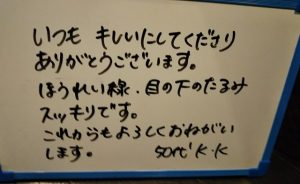 いつも キレイにしてくださり
ありがとうございます。
ほうれい線、目の下のたるみ
スッキリです。
これからもよろしくおねがい
します。 50代 K・K